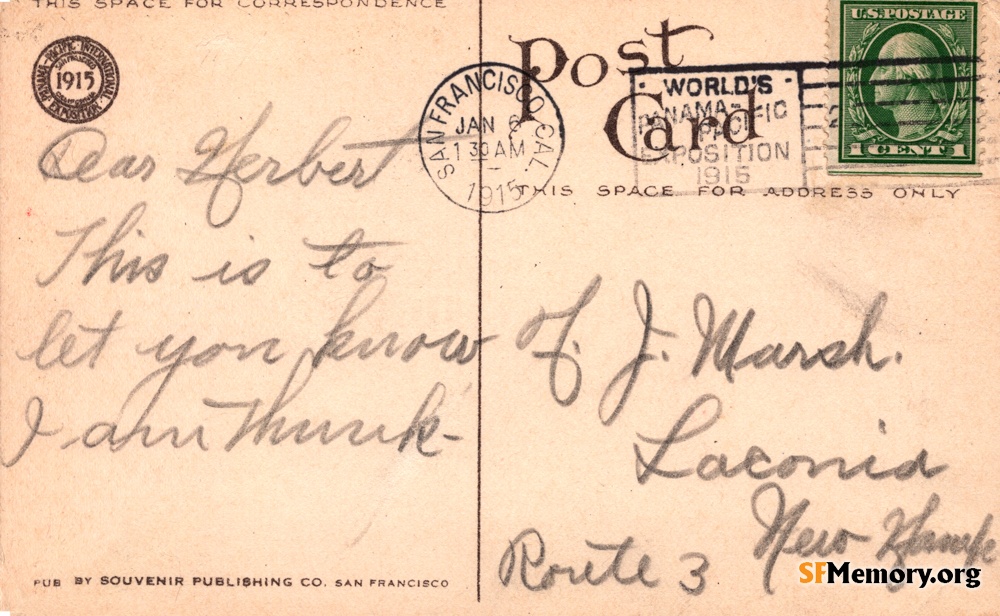 THIS SPACE FOR CORRESPONDENCE
PANAMA-PACIFIC INTERNATIONAL EXPOSITION
SAN FRANCISCO
1915
Dear Herbert
This is to
let you know
I am Think-
PUB BY SOUVENIR PUBLISHING CO. SAN FRANCISCO
Post
Card
SAN FRANCISCO, CAL.
JAN 6
1 30 AM
1915
WORLD'S
PANAMA-
PACIFIC
EXPOSITION
1915
U.S. POSTAGE
1 CENT 1
THIS SPACE FOR ADDRESS ONLY
J. Marsh.
Laconia
New Hamp
Route 3
SFMemory.org